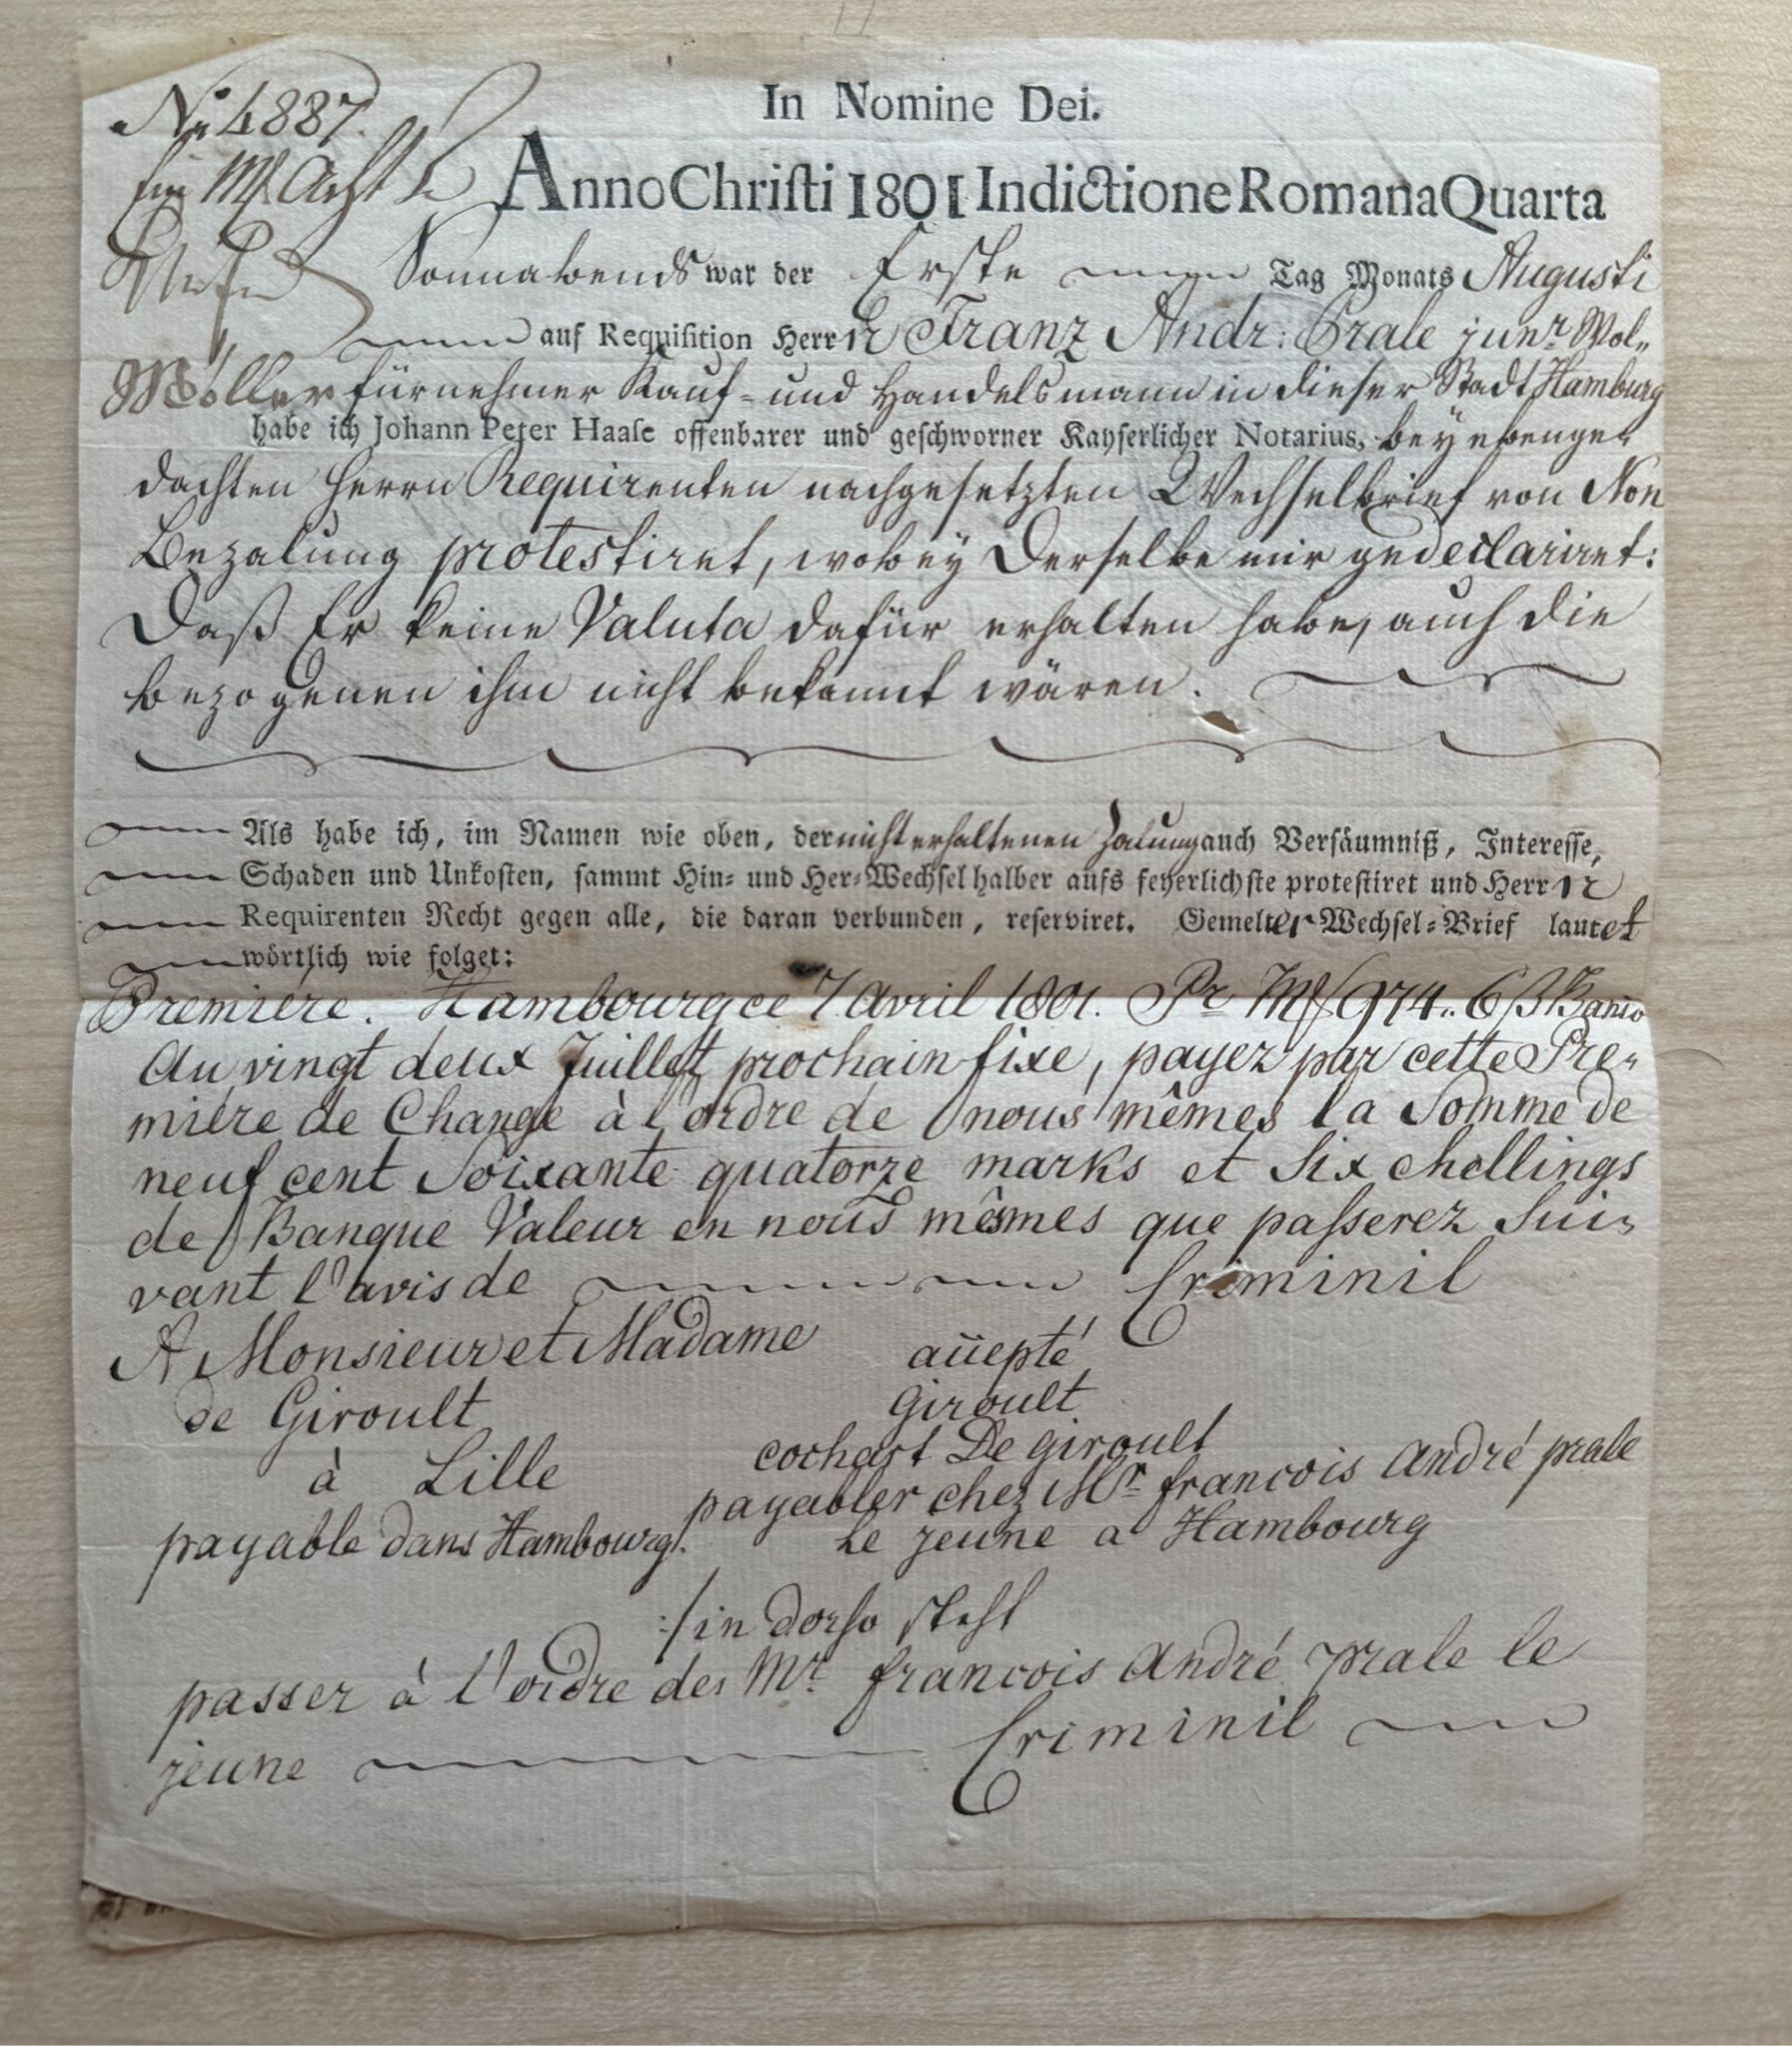 No 4887.
In Nomine Dei.
Ein Mk Acht ß
Anno Christi 1801 Indictione Romana Quarta
Sonnabends war der Erste Tag Monats Augusti
auf Requisition Herrn Franz Andr: Prale junr Wol„
Möller fürnehmer Kauf- und Handelsmann in dieser Stadt Hamburg
habe ich Johann Peter Haase offenbarer und geschworner Kayserlicher Notarius, bey ebenge„
dachten Herrn Requirenten nachgesetzten Wechselbrief von Non
Bezalung protestiret, wobey Derselbe mir gedeclariret:
Daß Er keine Valuta dafür erhalten habe, auch die
bezogenen ihm nicht bekannt wären.
Als habe ich, im Namen wie oben, der nicht erhaltenen Zalung auch Versäumniß, Interesse,
Schaden und Unkosten, sammt Hin- und Her-Wechsel halber aufs feyerlichste protestiret und Herrn
Requirenten Recht gegen alle, die daran verbunden, reserviret. Gemelter Wechsel-Brief lautet
wörtlich wie folget:
Premiére. Hambourg ce 7 Avril 1801. Pr Mk 974„ 6 ß Banco
Au vingt deux Juillet prochain fixe, payez par cette Pre„
miére de Change à l'ordre de nous mêmes la Somme de
neuf cent Soixante quatorze marks et Six chellings
de Banque Valeur en nous mêmes que passerez Sui„
vant l'avis de Criminil
A Monsieur et Madame
de Giroult
à Lille
payable dans Hambourg.
accepté
Giroult
cochart De giroult
payabler chez Mr francois André prale
Le jeune a Hambourg
:/in dorso steht
passer à l'ordre des Mr francois André prale le
jeune Criminil